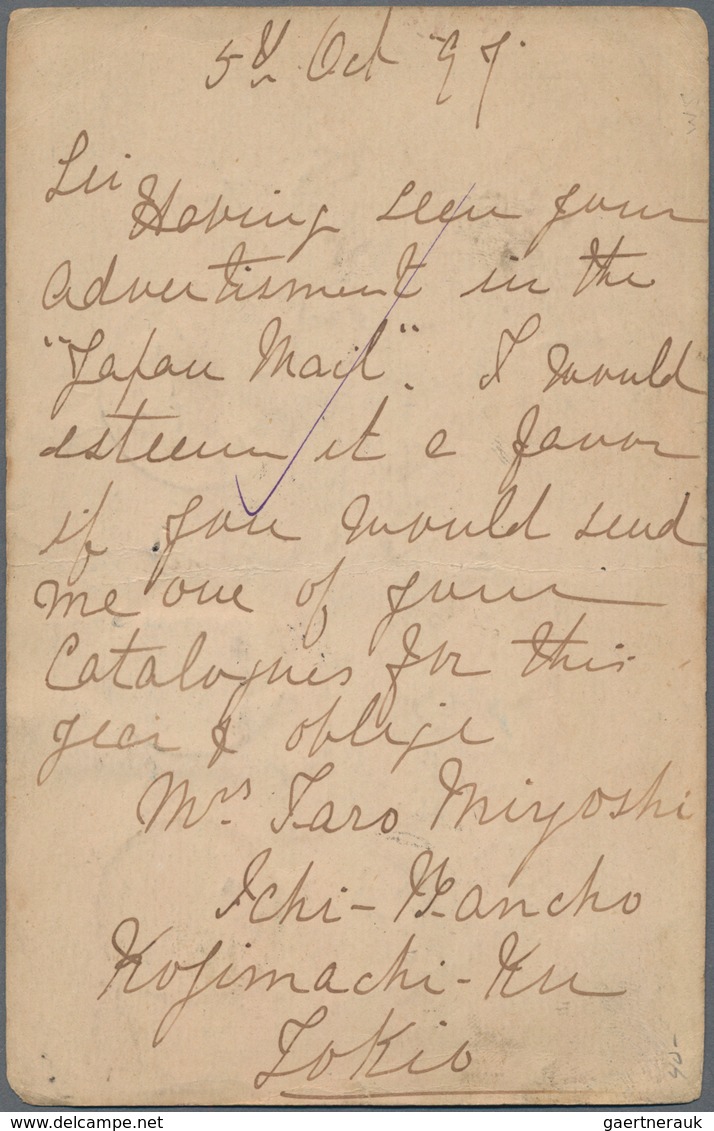 5th Oct 97.
Sir
Having seen your
advertisment in the
"Japan Mail". I would
esteem it a favor
if you would send
me one of your
Catalogues for this
year & oblige
Mrs. Taro Miyoshi
Ichi-Bancho
Kojimachi-Ku
Tokio
40-
gaertnerauk